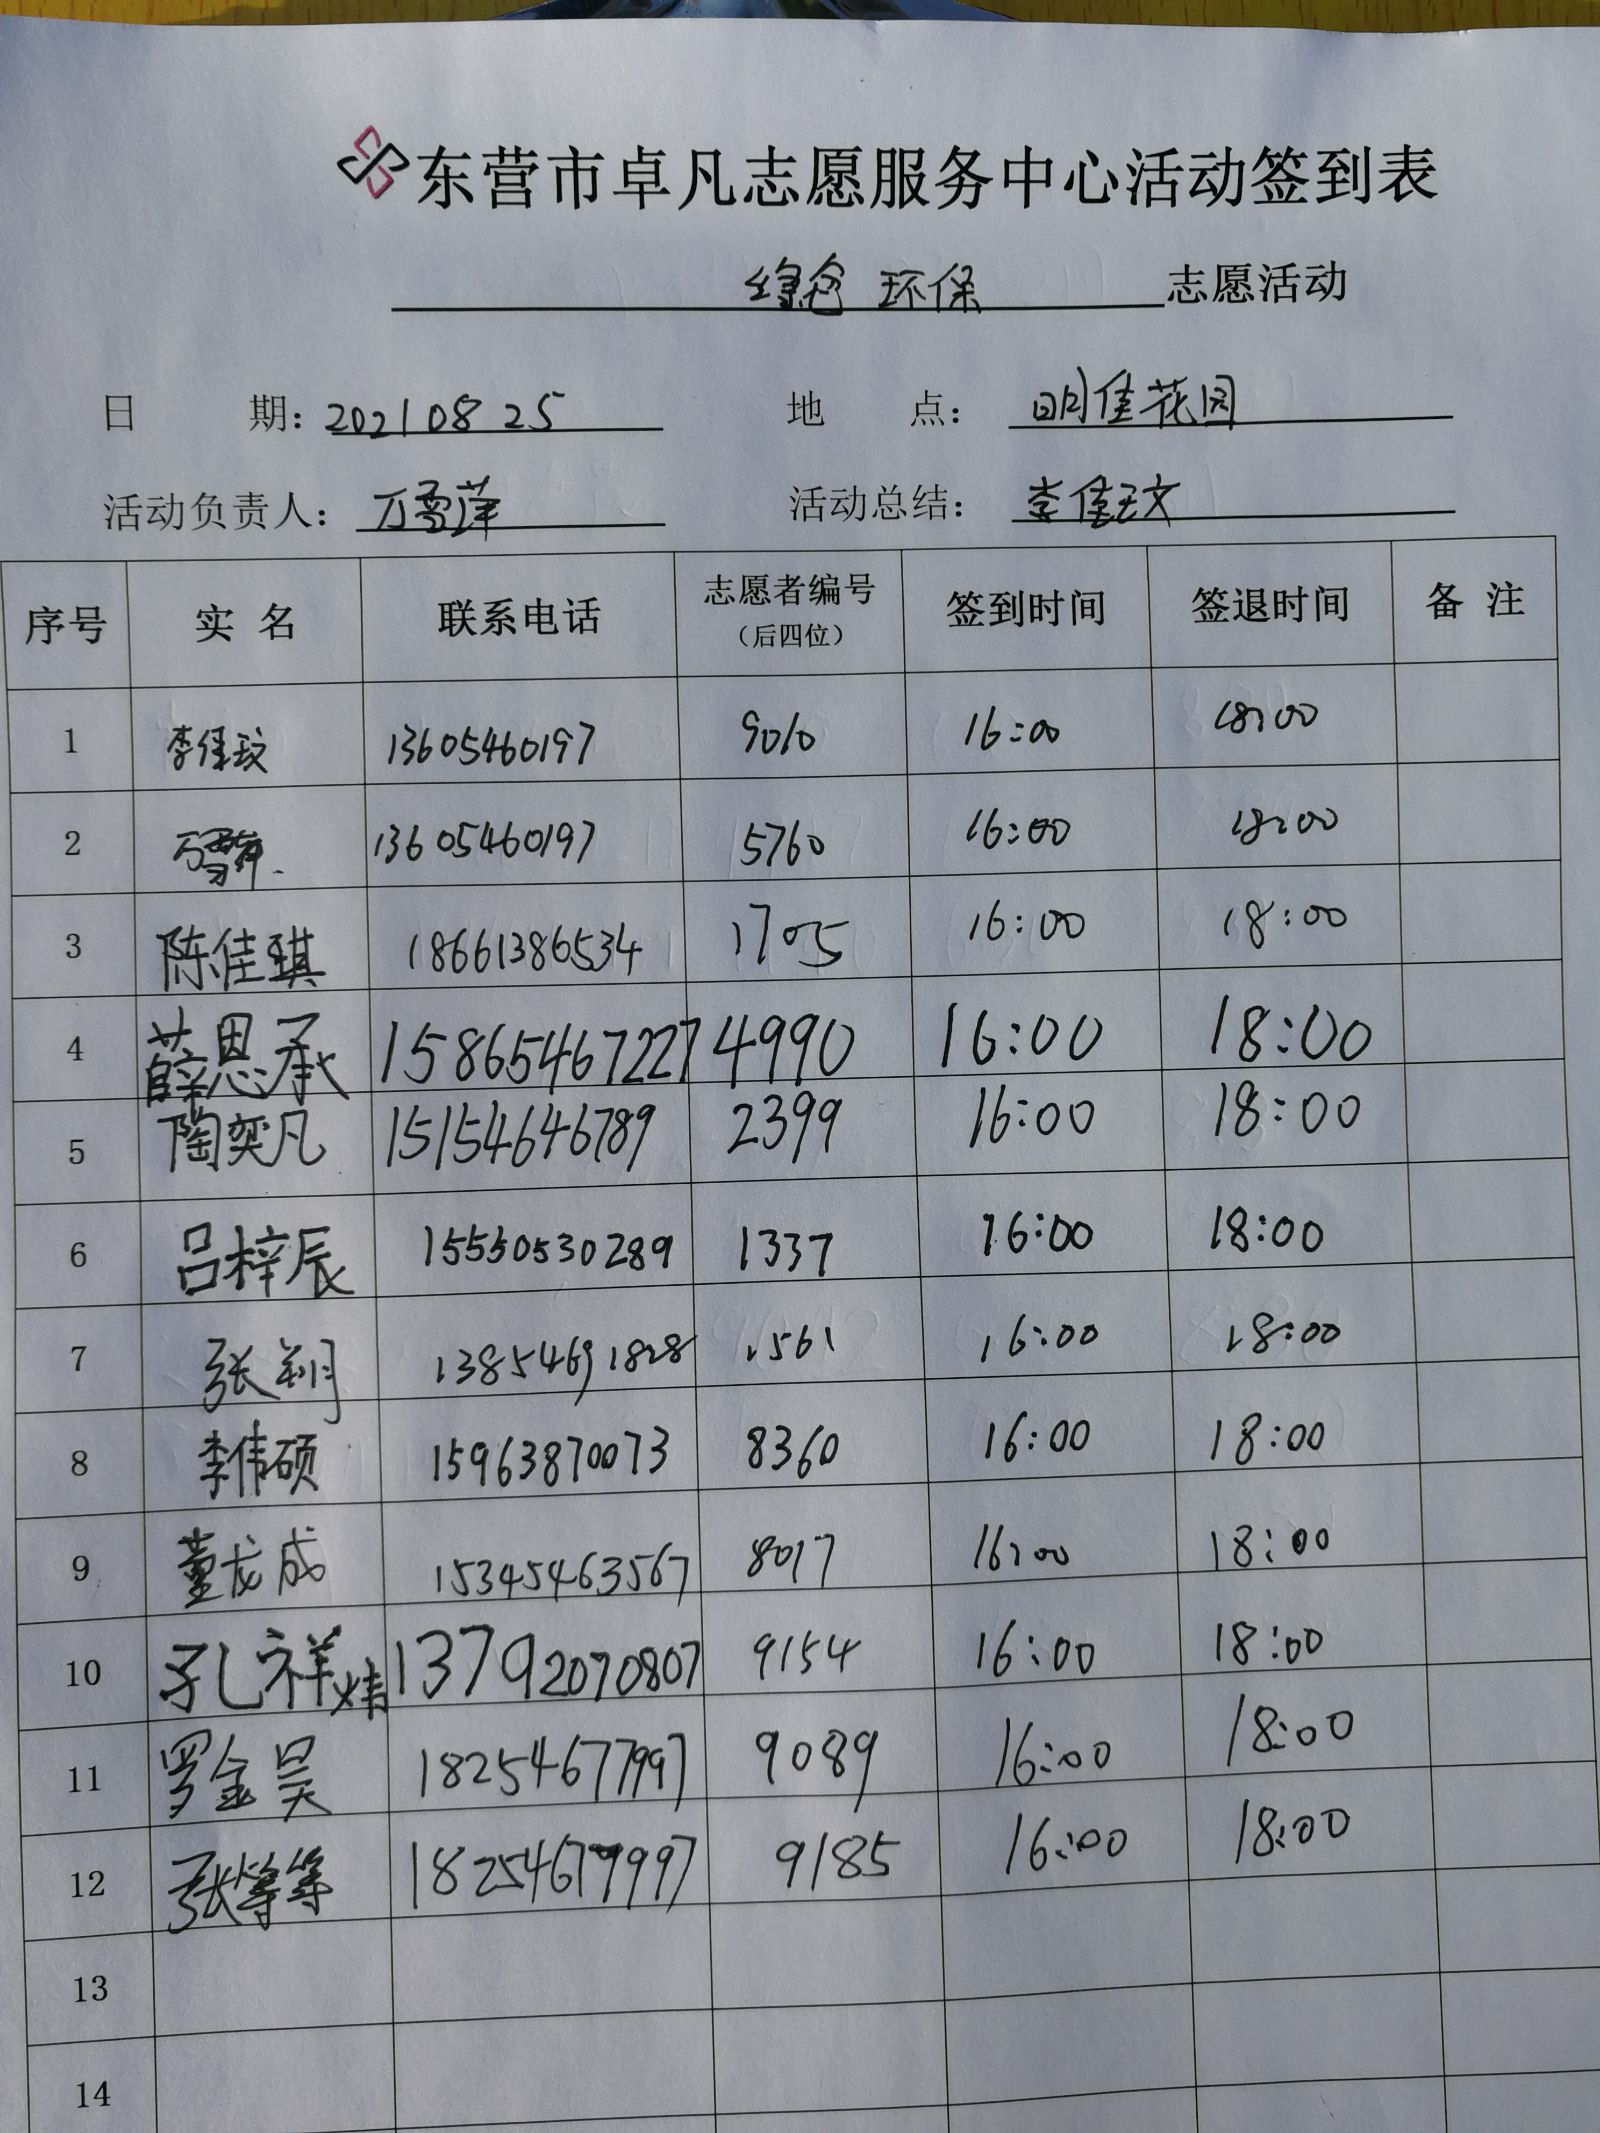 东营市卓凡志愿服务中心活动签到表
综合 环保 志愿活动
日 期: 2021 08 25 地 点: 明佳花园
活动负责人: 万雪萍 活动总结: 李佳玟
序号 实 名 联系电话 志愿者编号 (后四位) 签到时间 签退时间 备 注
1 李佳玟 13605460197 9010 16:00 18:00
2 万雪萍 13605460197 5760 16:00 18:00
3 陈佳琪 18661386534 1705 16:00 18:00
4 薛恩承 15865467227 4990 16:00 18:00
5 陶奕凡 15154646789 2399 16:00 18:00
6 吕梓辰 15550530289 1337 16:00 18:00
7 张翔 13854691828 1561 16:00 18:00
8 李伟硕 15963870073 8360 16:00 18:00
9 董龙成 15345463567 8017 16:00 18:00
10 孔祥婧 13792070807 9154 16:00 18:00
11 罗金昊 18254677997 9089 16:00 18:00
12 张等等 18254677997 9185 16:00 18:00
13
14